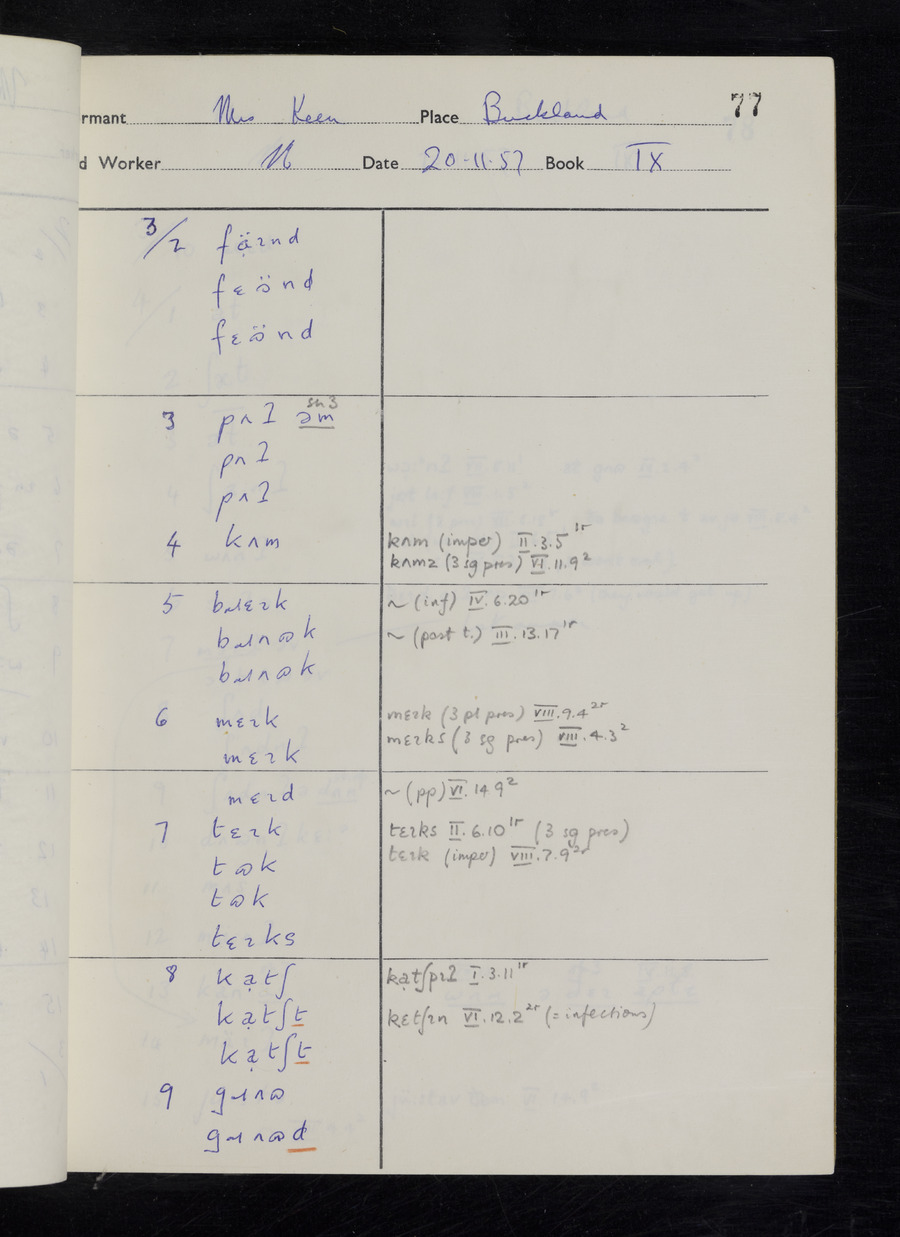 rmant Mrs Keen Place Buckland 77
d Worker N Date 20-11-57 Book IX
3/2 fạ̈ɪnd
fɛɵ̈nd
fɛɵ̈nd
sn 3
3 pʌɫ əm
pʌɫ
pʌɫ
4 kʌm kʌm (imper) II.3.5 1r
kʌmz (3 sg pres) VI.11.9 2
5 bɹɛɪk ~ (inf) IV.6.20 1r
bɹʌɷk ~ (past t.) III.13.17 1r
bɹʌɷk
6 mɛɪk mɛɪk (3 pl pres) VIII.9.4 2r
mɛɪks (3 sg pres) VIII.4.3 2
mɛɪk
mɛɪd ~ (pp) VI.14 9 2
7 tɛɪk tɛɪks II.6.10 1r (3 sg pres)
tɛɪk (imper) VIII.7.9 2r
tɷk
tɷk
tɛɪks
8 kạtʃ kạtʃpɪɫ I.3.11 1r
kạtʃt kɛtʃɪn VI.12.2 2r (= infectious)
kạtʃt
9 gɹʌɷ
gɹʌɷd